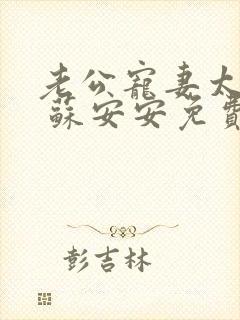 老公寵妻太
蘇安安免費
彭吉林